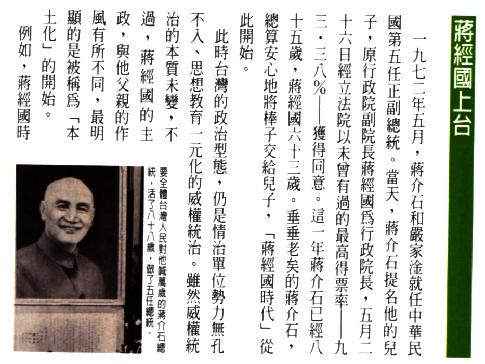 蔣經國上台
一九七二年五月，蔣介石和嚴家淦就任中華民
國第五任正副總統。當天，蔣介石提名他的兒
子，原行政院副院長蔣經國爲行政院長，五月二
十六日經立法院以未曾有過的最高得票率——九
三·三八％——獲得同意。這一年蔣介石已經八
十五歲，蔣經國六十三歲。垂垂老矣的蔣介石，
總算安心地將棒子交給兒子，「蔣經國時代」從
此開始。
此時台灣的政治型態，仍是情治單位勢力無孔
不入、思想教育一元化的威權統治。雖然威權統
治的本質未變，不
過，蔣經國的主
政，與他父親的作
風有所不同，最明
顯的是被稱爲「本
土化」的開始。
例如，蔣經國時
要全體台灣人民對他喊萬歲的蔣介石總
統，活了八十八歲，做了五任總統。